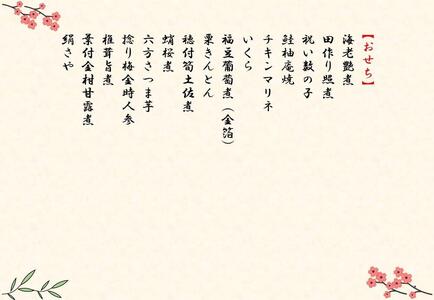 【おせち】
海老艶煮
田作り照煮
祝い数の子
鮭柚庵焼
チキンマリネ
いくら
福豆葡萄煮（金箔）
栗きんとん
穂付筍土佐煮
蛸桜煮
六方さつま芋
捻り梅金時人参
椎茸旨煮
葉付金柑甘露煮
絹さや